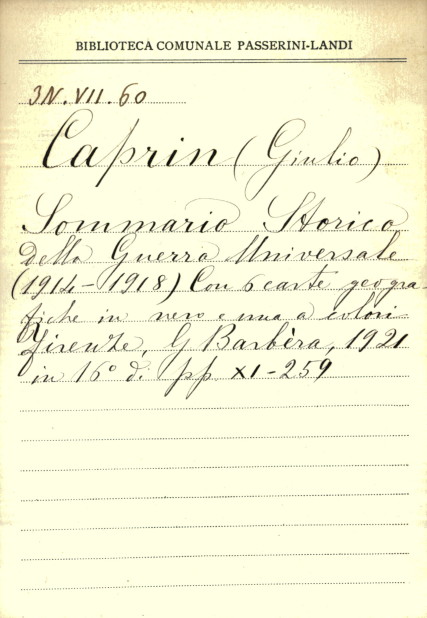 BIBLIOTECA COMUNALE PASSERINI-LANDI
3N.VII.60
Caprin (Giulio)
Sommario Storico
della Guerra Universale
(1914-1918) Con 6 carte geogra-
fiche in nero e una a colori
Firenze, G Barbèra, 1921
in 16° di pp XI-259